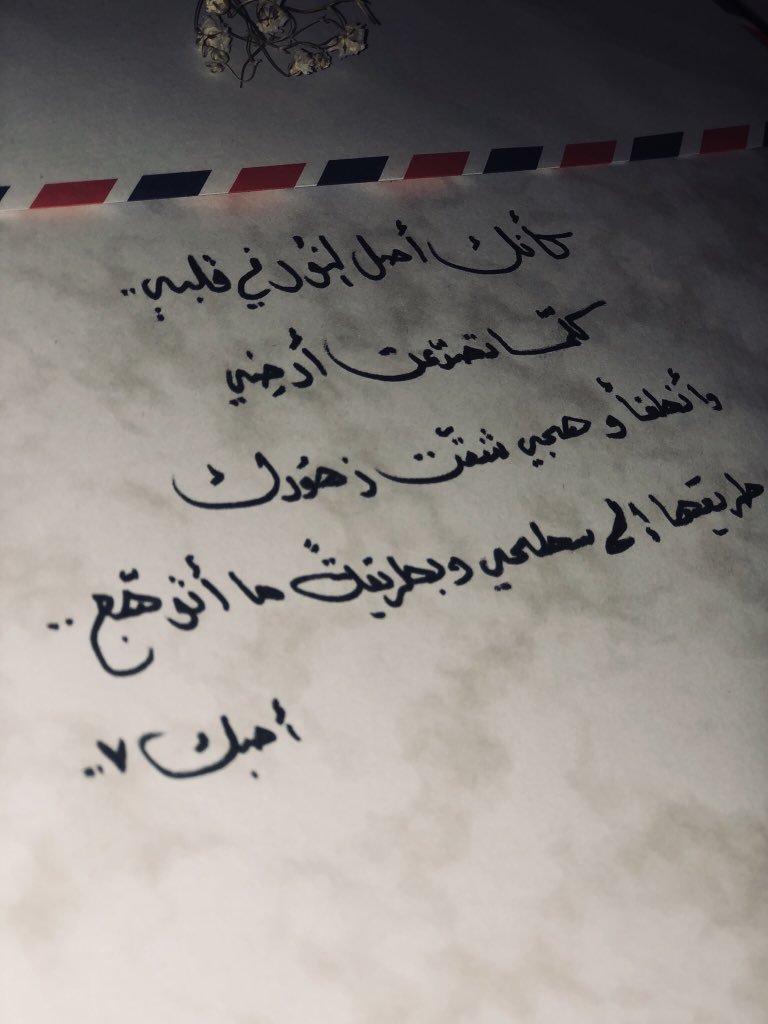 كأنك أصل النؤر في قلبي..
كلّما تصدّعت أرضي
وأنطفأ وهجي شقّت زهورك
طريقها إلى سطحي وبطريقةً ما أتوهّج..
أحبك ٧..